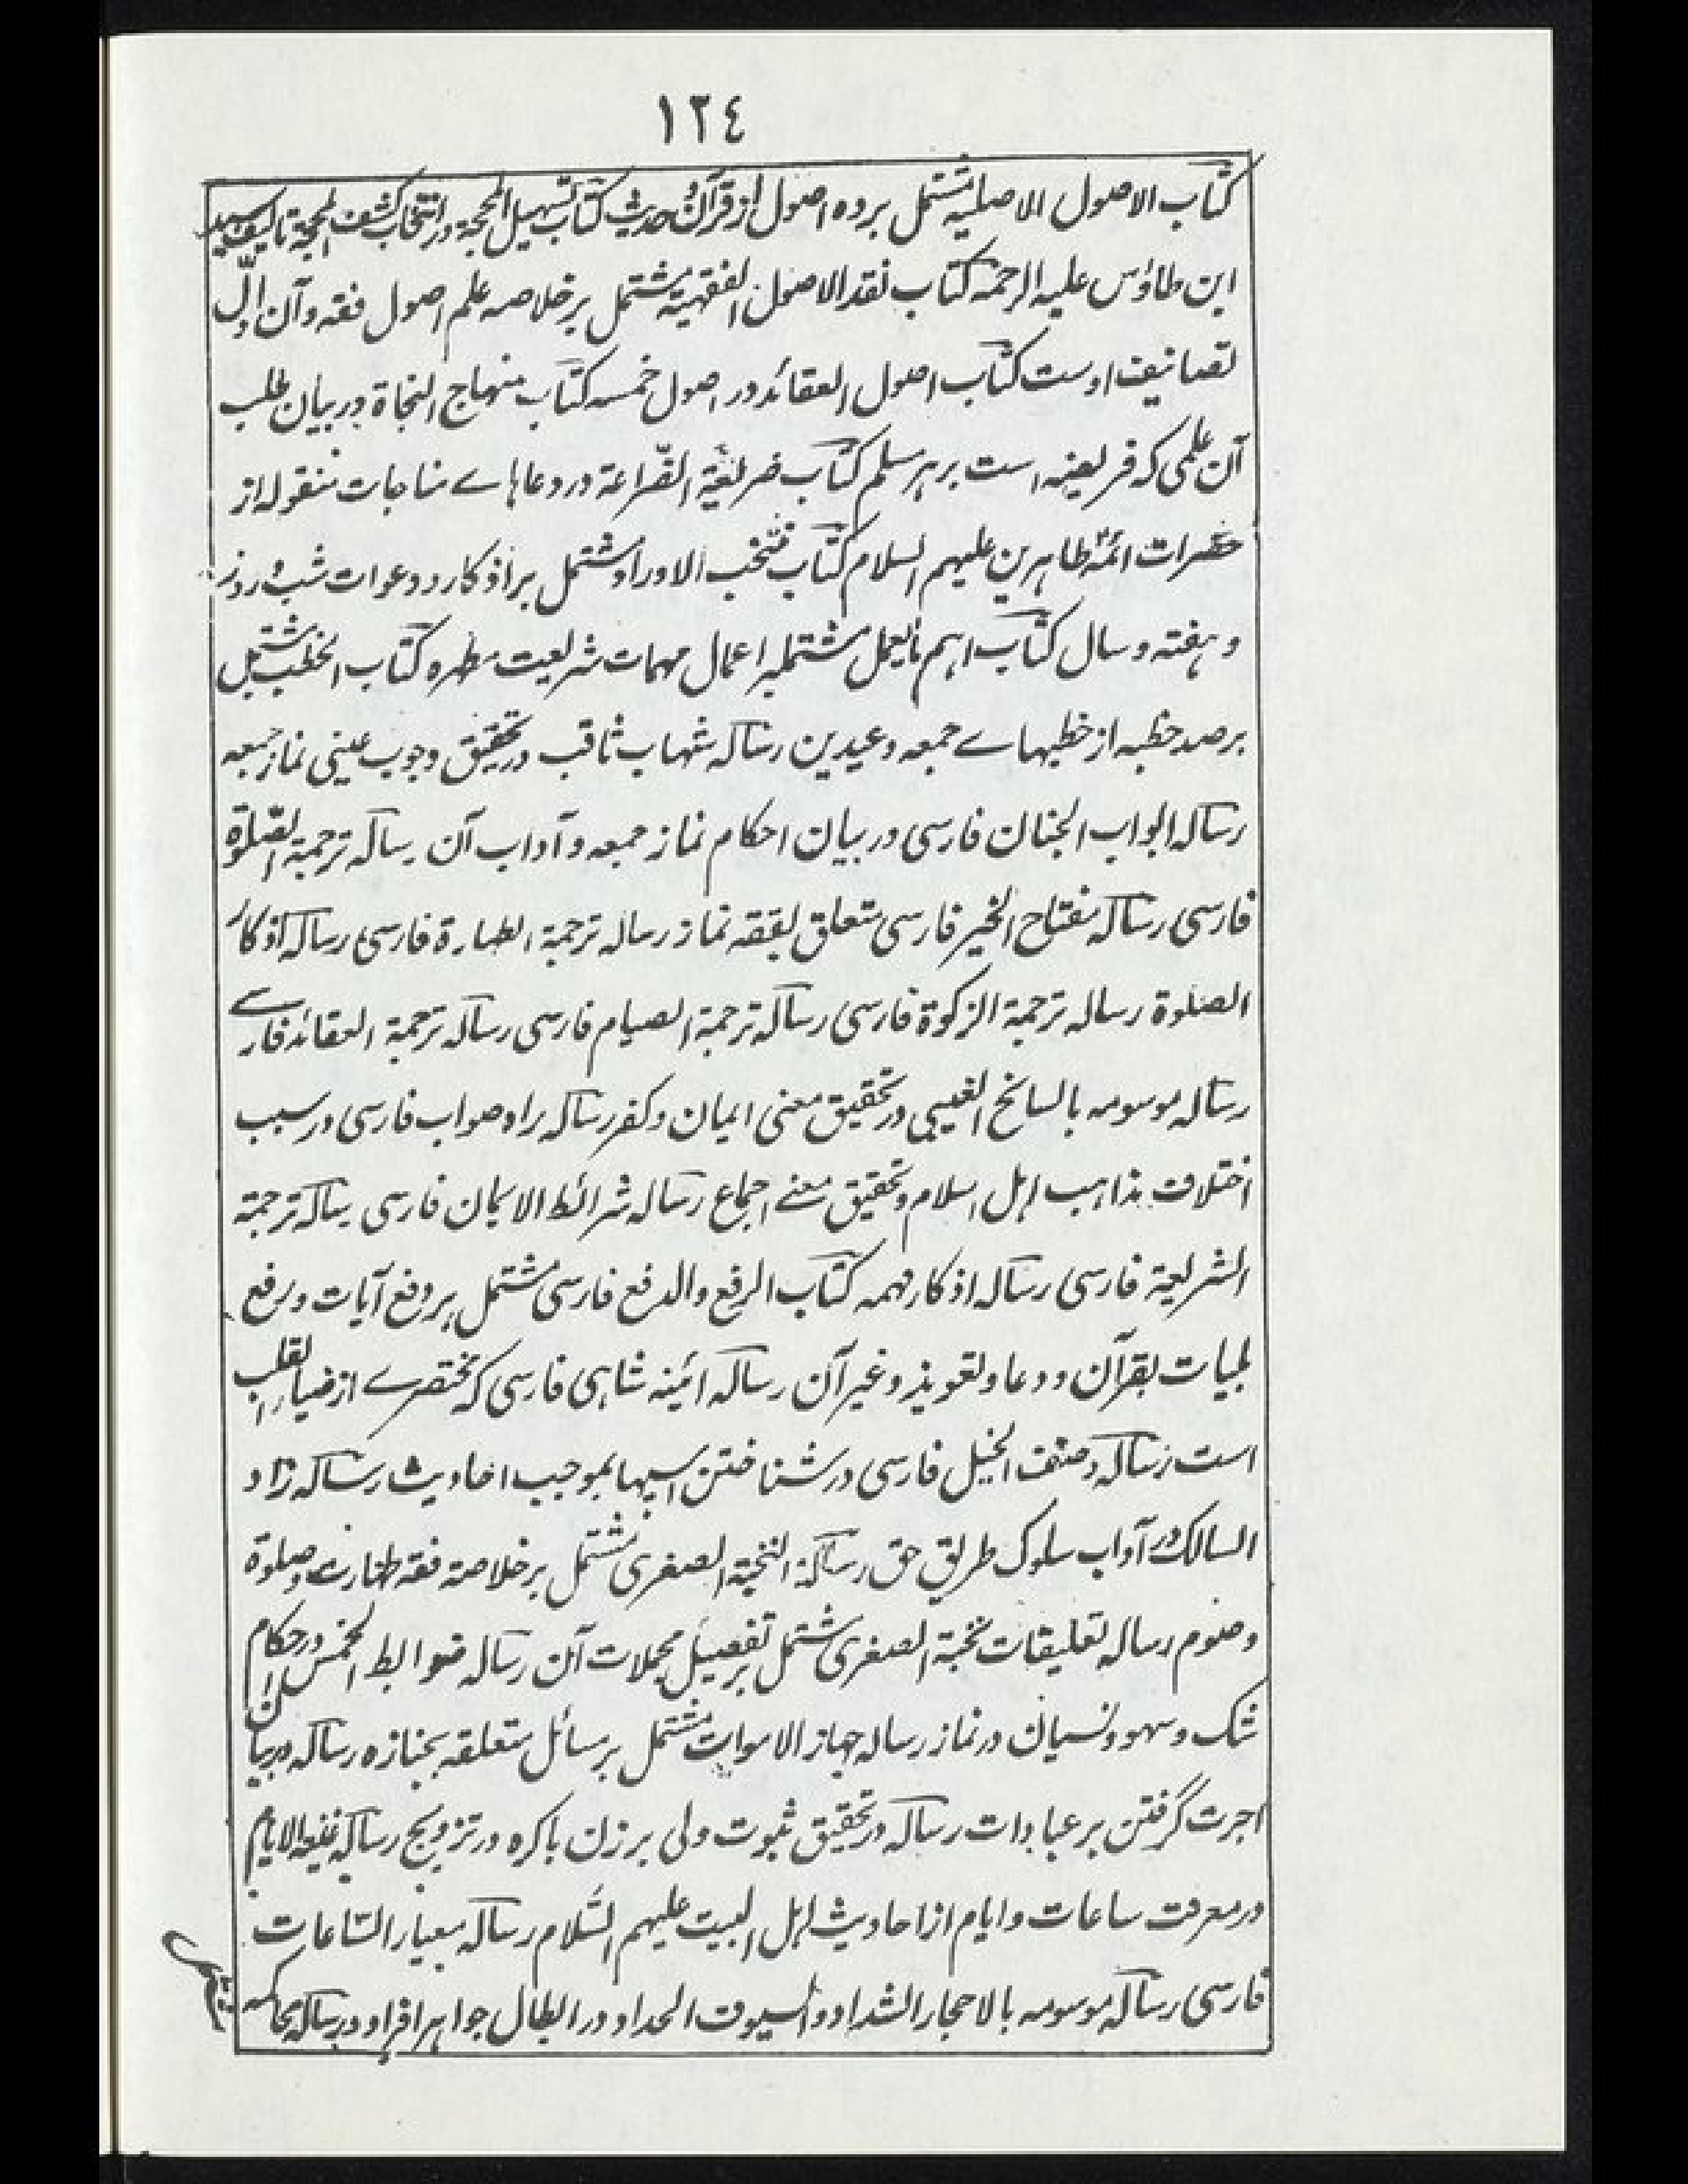 ١٢٤
كتاب الاصول الاصليه مشتمل برده اصول از قرآن و حديث كتاب تسهيل المحجة در انتخاب كشف المحجة تاليف سيد
ابن طاؤس عليه الرحمة كتاب نقد الاصول الفقهية مشتمل بر خلاصه علم اصول فقه و آن اول
تصانيف اوست كتاب اصول العقائد در اصول خمسه كتاب منهاج النجاة در بيان طلب
آن علمى كه فريضه است بر هر مسلم كتاب ضريعة الضّراعة در دعاهاے مناجات منقوله از
حضرات ائمهٔ طاهرين عليهم السلام كتاب منتخب الاوراد مشتمل بر اذكار و دعوات شب و روز
و هفته و سال كتاب اهم ما يعمل مشتمل بر اعمال مهمات شريعت مطهره كتاب الخطب مشتمل
بر صد خطبه از خطبهاے جمعه و عيدين رساله شهاب ثاقب در تحقيق وجوب عينى نماز جمعه
رساله ابواب الجنان فارسى در بيان احكام نماز جمعه و آداب آن رساله ترجمة الصّلوة
فارسى رساله مفتاح الخير فارسى متعلق بفقه نماز رساله ترجمة الطهارة فارسى رساله اذكار
الصلوة رساله ترجمة الزكوة فارسى رساله ترجمة الصيام فارسى رساله ترجمة العقائد فارسے
رساله موسومه بالسانح الغيبى در تحقيق معنى ايمان و كفر رساله راه صواب فارسى در سبب
اختلاف مذاهب اهل اسلام و تحقيق معنے اجماع رساله شرائط الايمان فارسى رساله ترجمة
الشريعة فارسى رساله اذكار مهمه كتاب الرفع والدفع فارسى مشتمل بر دفع آيات و رفع
بليات بقرآن و دعا و تعويذ و غير آن رساله ائينه شاهى فارسى كه مختصرے از ضياء القلب
است رساله وصف الخيل فارسى در شناختن اسپها بموجب احاديث رساله زاد
السالك در آداب سلوك طريق حق رسالة النخبة الصغرى مشتمل بر خلاصه فقه طهارت و صلوة
و صوم رساله تعليقات نخبة الصغرى مشتمل بر تفصيل مجملات آن رساله ضوابط الخمس در احكام
شك و سهو و نسيان در نماز رساله جهاز الاموات مشتمل بر مسائل متعلقه بجنازه رساله در بيان
اجرت گرفتن بر عبادات رساله در تحقيق ثبوت ولى بر زن باكره در تزويج رساله غنية الايام
در معرفت ساعات و ايام از احاديث اهل البيت عليهم السّلام رساله معيار السّاعات
فارسى رساله موسومه بالاحجار الشداد و السيوف الحداد در ابطال جواهر افراد در رساله محاكمه